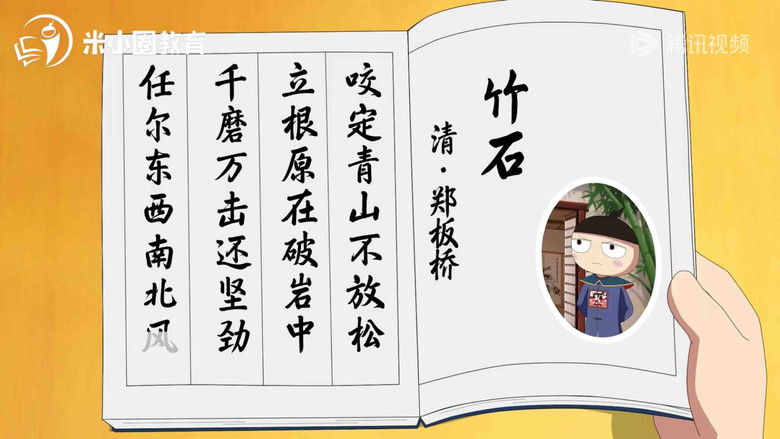 米小圈教育
腾讯视频
竹石
清·郑板桥
咬定青山不放松
立根原在破岩中
千磨万击还坚劲
任尔东西南北风